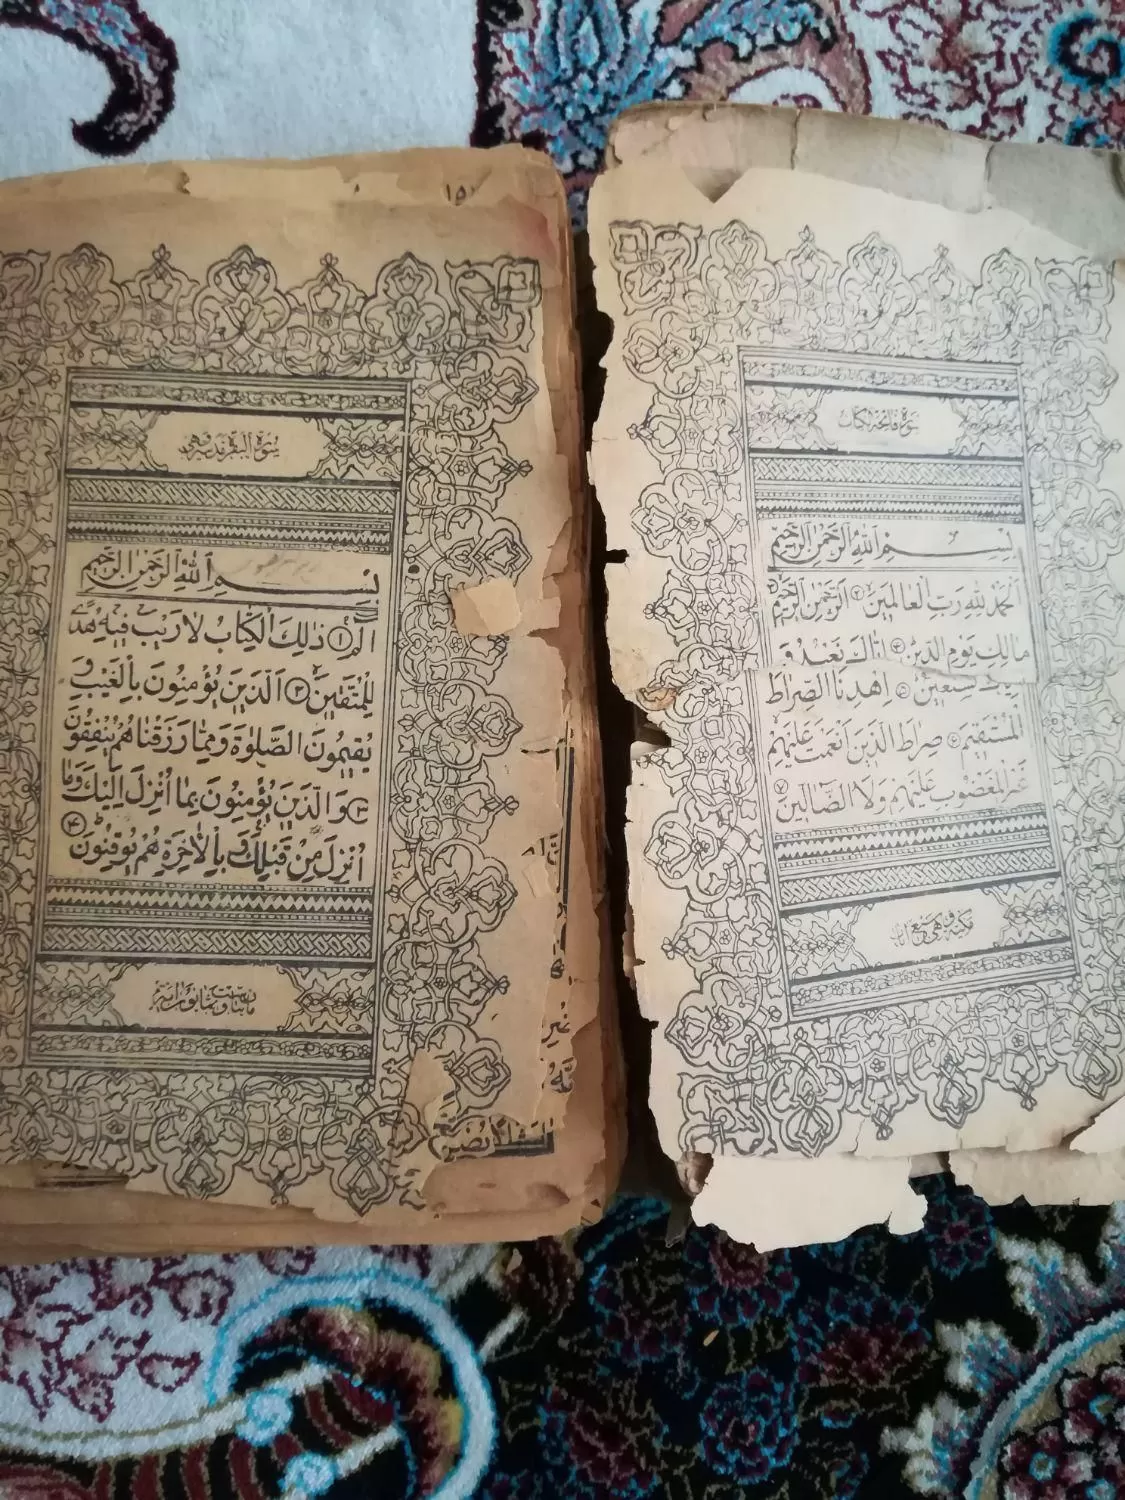 سورة فاتحة الكتاب
بسم الله الرحمن الرحيم
الحمد لله رب العالمين ٢ الرحمن الرحيم
مالك يوم الدين ۴ اياك نعبد و
نستعين ۵ اهدنا الصراط
المستقيم ۶ صراط الذين انعمت عليهم
غير المغضوب عليهم ولا الضالين ٧
مكية وهي سبع آيات
١٥
سورة البقرة مدنية وهي
بسم الله الرحمن الرحيم
الم ١ ذلك الكتاب لا ريب فيه هدى
للمتقين ٢ الذين يؤمنون بالغيب
يقيمون الصلوة ومما رزقناهم ينفقون
٣ والذين يؤمنون بما انزل اليك وما
انزل من قبلك وبالاخرة هم يوقنون ۴